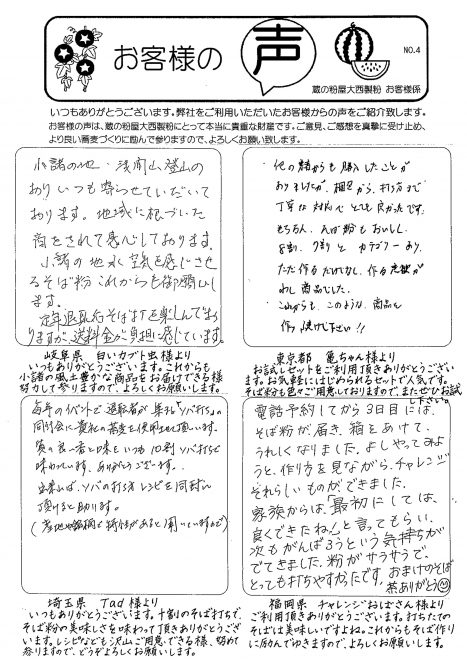 お客様の
声
NO.4
蔵の粉屋大西製粉 お客様係
いつもありがとうございます。弊社をご利用いただいたお客様からの声をご紹介致します。
お客様の声は、蔵の粉屋大西製粉にとって本当に貴重な財産です。ご意見、ご感想を真摯に受け止め、
より良い蕎麦づくりに励んで参りますので、よろしくお願い致します。
小諸の地・浅間山登山の
おりいつも寄らせていただいて
おります。地域に根づいた
商をされて感心しております。
小諸の地、水、空気を感じさせ
るそば粉これからも御願いし
ます。
定年退職后そば打を楽しんでお
りますが、送料金が負担に感じています。
岐阜県 白いカブト虫様より
いつもありがとうございます。これからも
小諸の風土豊かな商品をお届けできる様
努力して参りますので、よろしくお願いします。
他の緒からも購入したことが
ありましたが、梱包から、打ち方まで
丁寧な対応でとても良かったです。
もちろん、そば粉もおいしく、
8割、9割とカテゴリーあり、
ただ作るだけでなく、作る意欲が
わく商品でした。
これからも、このような商品を
作り続けて下さい!!
東京都 亀ちゃん様より
お試しセットをご利用頂きありがとうござい
ます。お気軽にはじめられるセットで人気です。
そば粉も色々ご用意しておりますので、またぜひお試
し下さい。
毎年の行事で退職者が集い「ソバ打ち」の
同好会に貴社の蕎麦を使用させて頂います。
質の良い香と味をいつも10割ソバ打ちで
味わっています。ありがとうございます。
出来れば、ソバの打ち方レシピを同封し
頂けると助ります。
(産地や銘柄で特性があると聞いていますので)
埼玉県 Tad様より
いつもありがとうございます。十割のそば打ちで、
そば粉の美味しさを味わって頂きありがとうござ
います。レシピなども沢山ご用意できる様、努めて
参りますので、どうぞよろしくお願いします。
電話予約してから3日目には、
そば粉が届き、箱をあけて、
うれしくなりました。よしやってみよ
うと、作り方を見ながら、チャレンジ
それらしいものができました。
家族からは、「最初にしては、
良くできたね!」と言ってもらい、
次もがんばろうという気持ちが
でてきました。粉がサラサラで、
とっても打ちやすかったです。おまけのそば
茶ありがとう
福岡県 チャレンジおばさん様より
ご利用頂きありがとうございます。打ちたての
そばは美味しいですよね。これからもそば作り
に励んでゆきますので、よろしくお願いします。